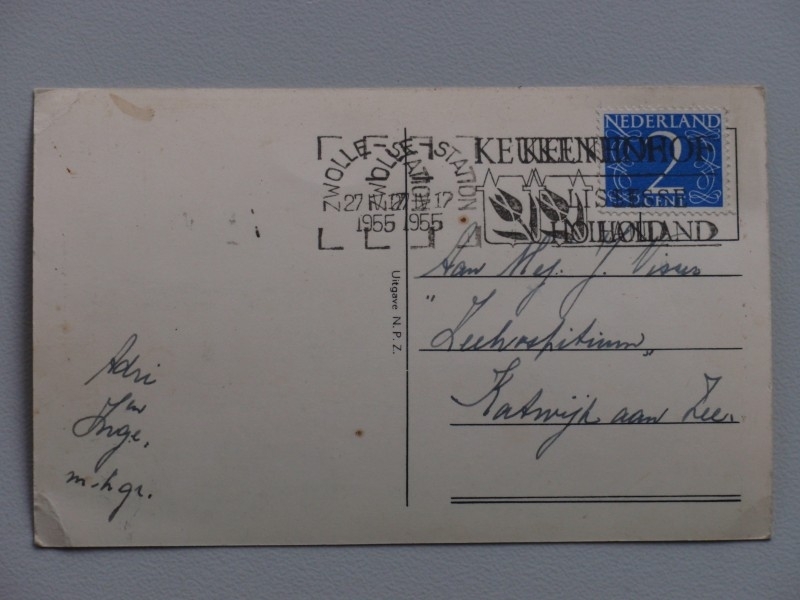 NEDERLAND
2
CENT
ZWOLLE-STATION
27 IV 17
1955
ZWOLLE-STATION
27 IV 17
1955
KEUKENHOF
LISSE
HOLLAND
Uitgave N.P.Z.
Aan Mej. J. Visser
"Zeehospitium"
Katwijk aan Zee.
Adri
en
Inge.
m-h.gr.